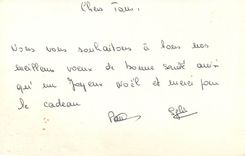 Chers Tous.
Nous vous souhaitons à tous nos
meilleurs voeux de bonne santé ainsi
qu'un Joyeux Noël et merci pour
le cadeau